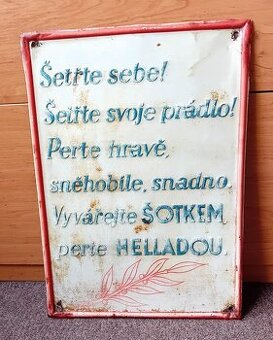 Šetřte sebe!
Šetřte svoje prádlo!
Perte hravě,
sněhobíle, snadno.
Vyvářejte ŠOTKEM,
perte HELLADOU.